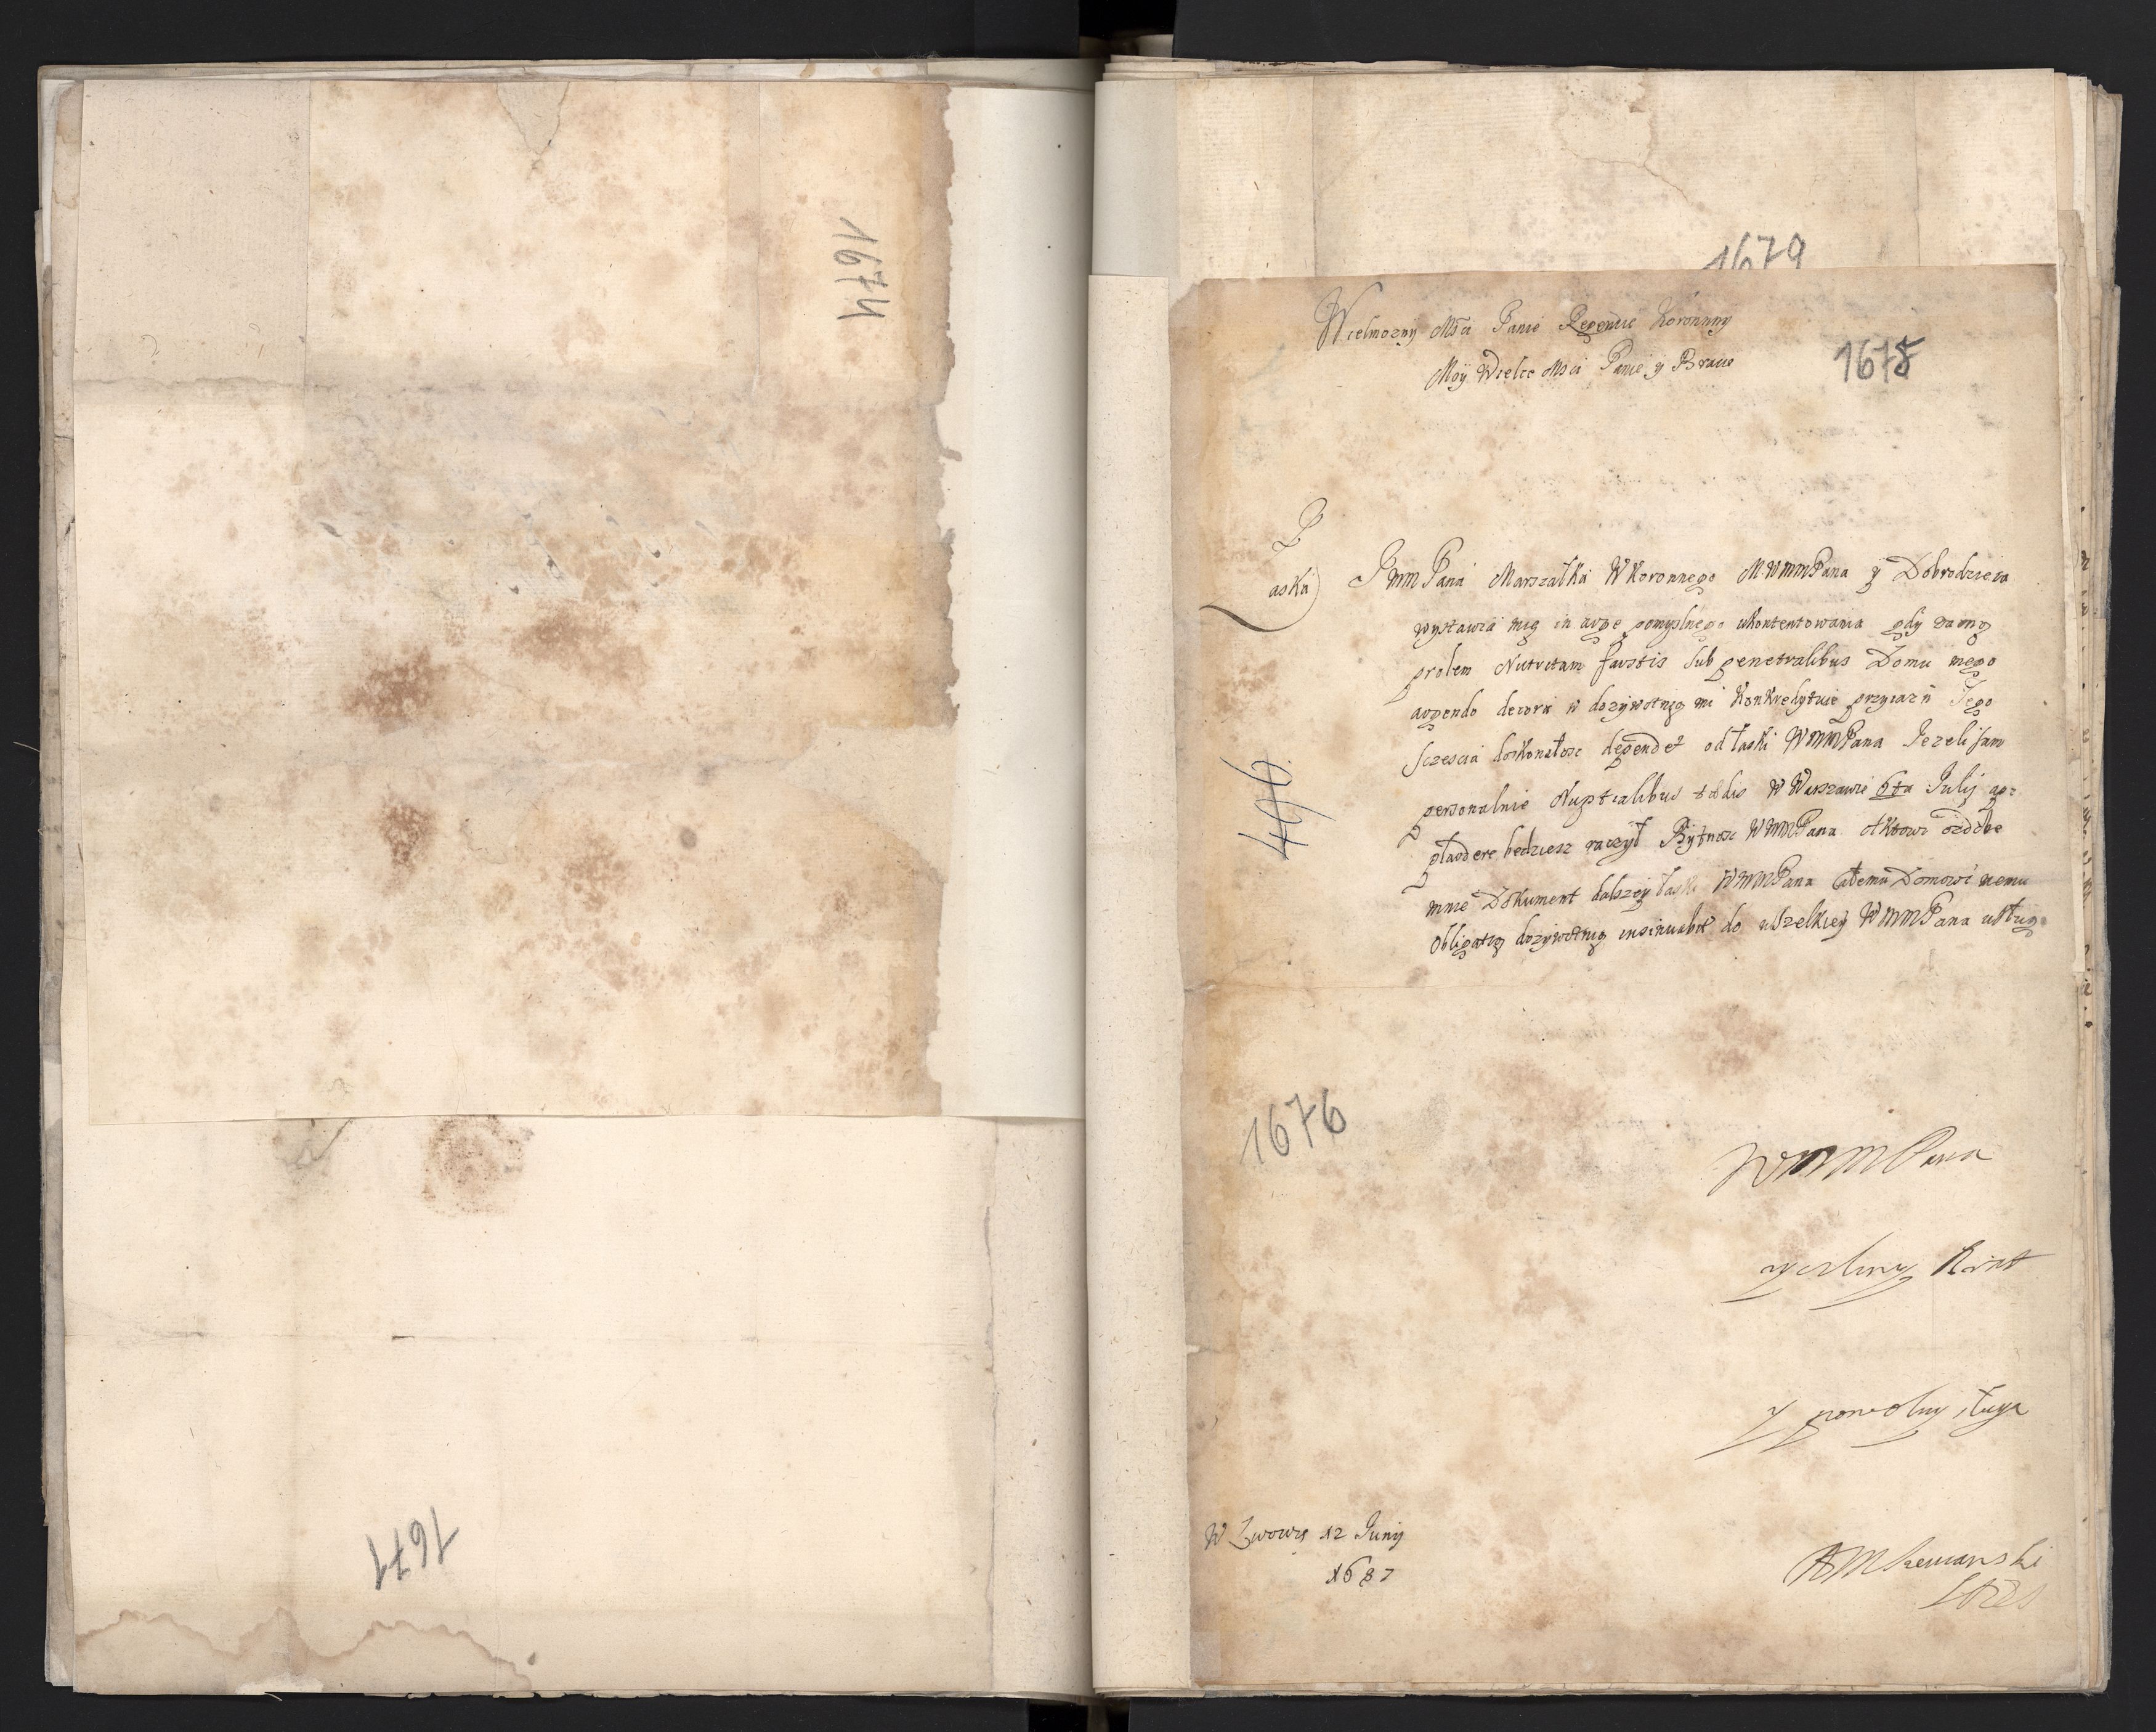 1674
1671
1679
Wielmozny Msci Panie Regencie Koronny
1678
Moy Wielce Msci Panie y Bracie
Łaska JWM Pana Marszałka WKoronnego MWMMPana y Dobrodzieia
wystawia mię in auge pomyslnego ukontentowania gdy zacną
prolem Nutritam faustis sub penetralibus Domu mego
augendo decori w dozywotnią mi konkredytuie przyiazn Tego
sczescia doskonałosc dependet od łaski WMMPana Iezeli sam
personalnie Nuptialibus tædis w Warszawie 6ta Julij ap:
plaudere będziesz raczył Bytnosc WMMPana Aktowi ozdobę
mnie Dokument dalszey łaski WMMPana całemu Domowi memu
obligatią dozywotnią insinuabit do wszelkiey WMMPana usług
496.
1676
WMMPana
zyczliwy Brat
y powolny sługa
W Lwowie 12 Junij
1687